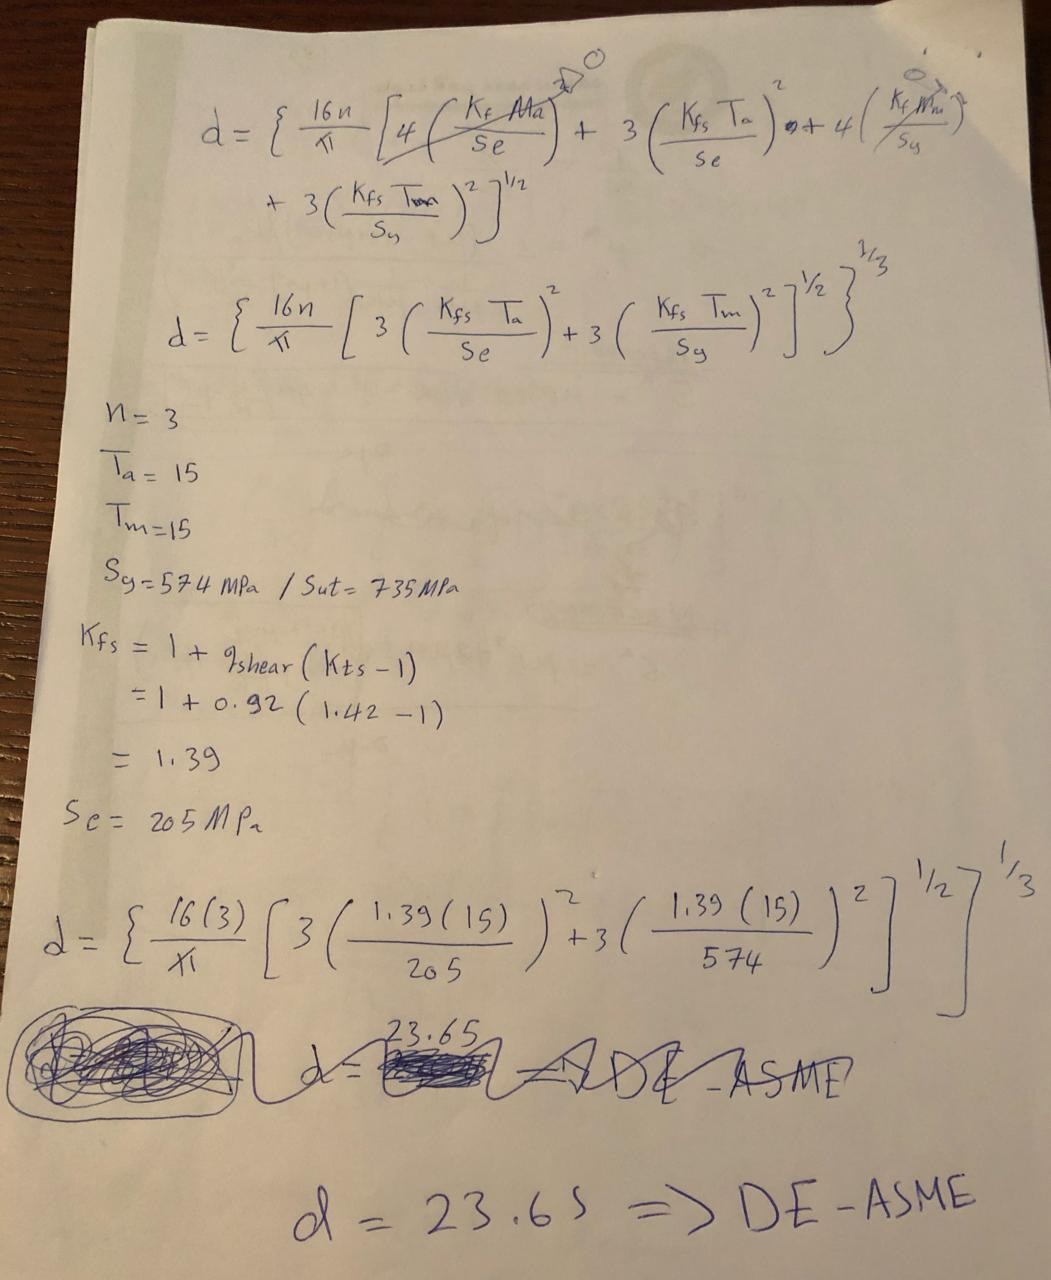 d = { 16n/π [ 4 ( Kf Ma / Se )² → 0 + 3 ( Kfs Ta / Se )² + 4 ( Kf Mm / Sy )² → 0
+ 3 ( Kfs Tm / Sy )² ]^1/2
d = { 16n/π [ 3 ( Kfs Ta / Se )² + 3 ( Kfs Tm / Sy )² ]^1/2 }^1/3
n = 3
Ta = 15
Tm = 15
Sy = 574 MPa / Sut = 735 MPa
Kfs = 1 + qshear ( Kts - 1 )
= 1 + 0.92 ( 1.42 - 1 )
= 1.39
Se = 205 MPa
d = { 16(3)/π [ 3 ( 1.39 (15) / 205 )² + 3 ( 1.39 (15) / 574 )² ]^1/2 ]^1/3
d = 23.65 => DE - ASME
d = 23.65 => DE - ASME